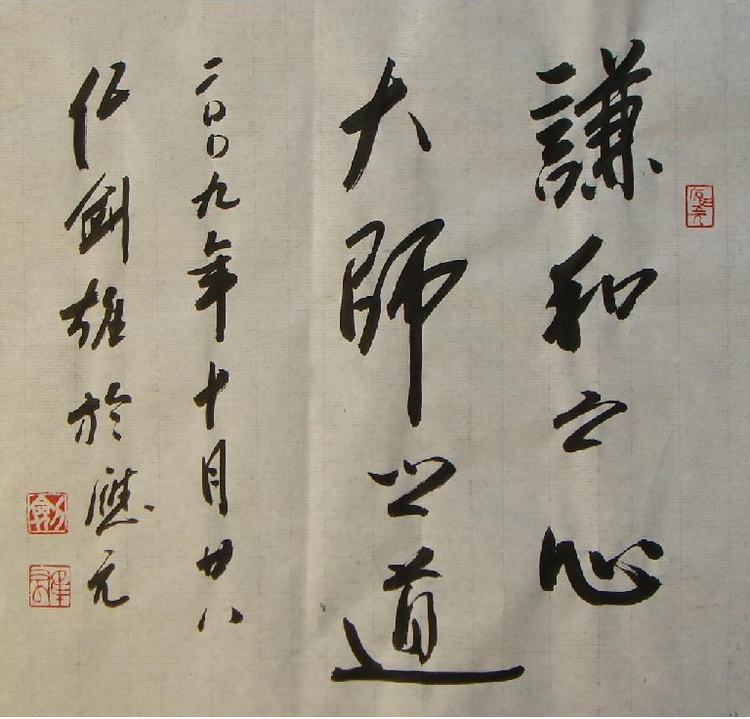 謙和之心
大師之道
二〇〇九年十月廿八
任劍雄於應元